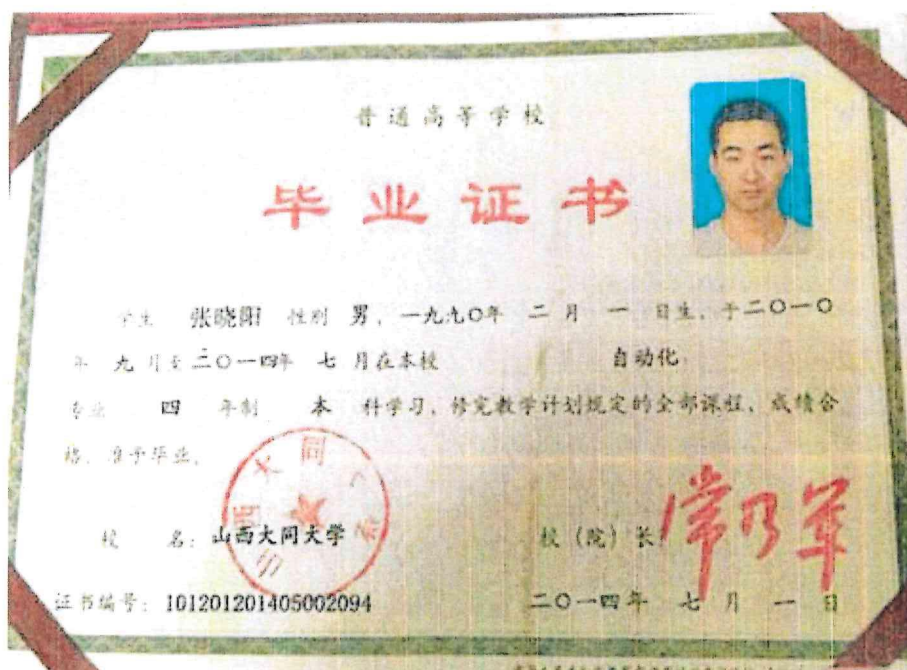 普通高等学校
毕业证书
学生 张晓阳 性别 男，一九九〇年 二 月 一 日生，于二〇一〇
年 九 月至二〇一四年 七 月在本校 自动化
专业 四 年制 本 科学习，修完教学计划规定的全部课程，成绩合
格，准予毕业。
山西大同大学
校 名：山西大同大学 校（院）长 常乃军
证书编号：101201201405002094 二〇一四年 七 月 一 日